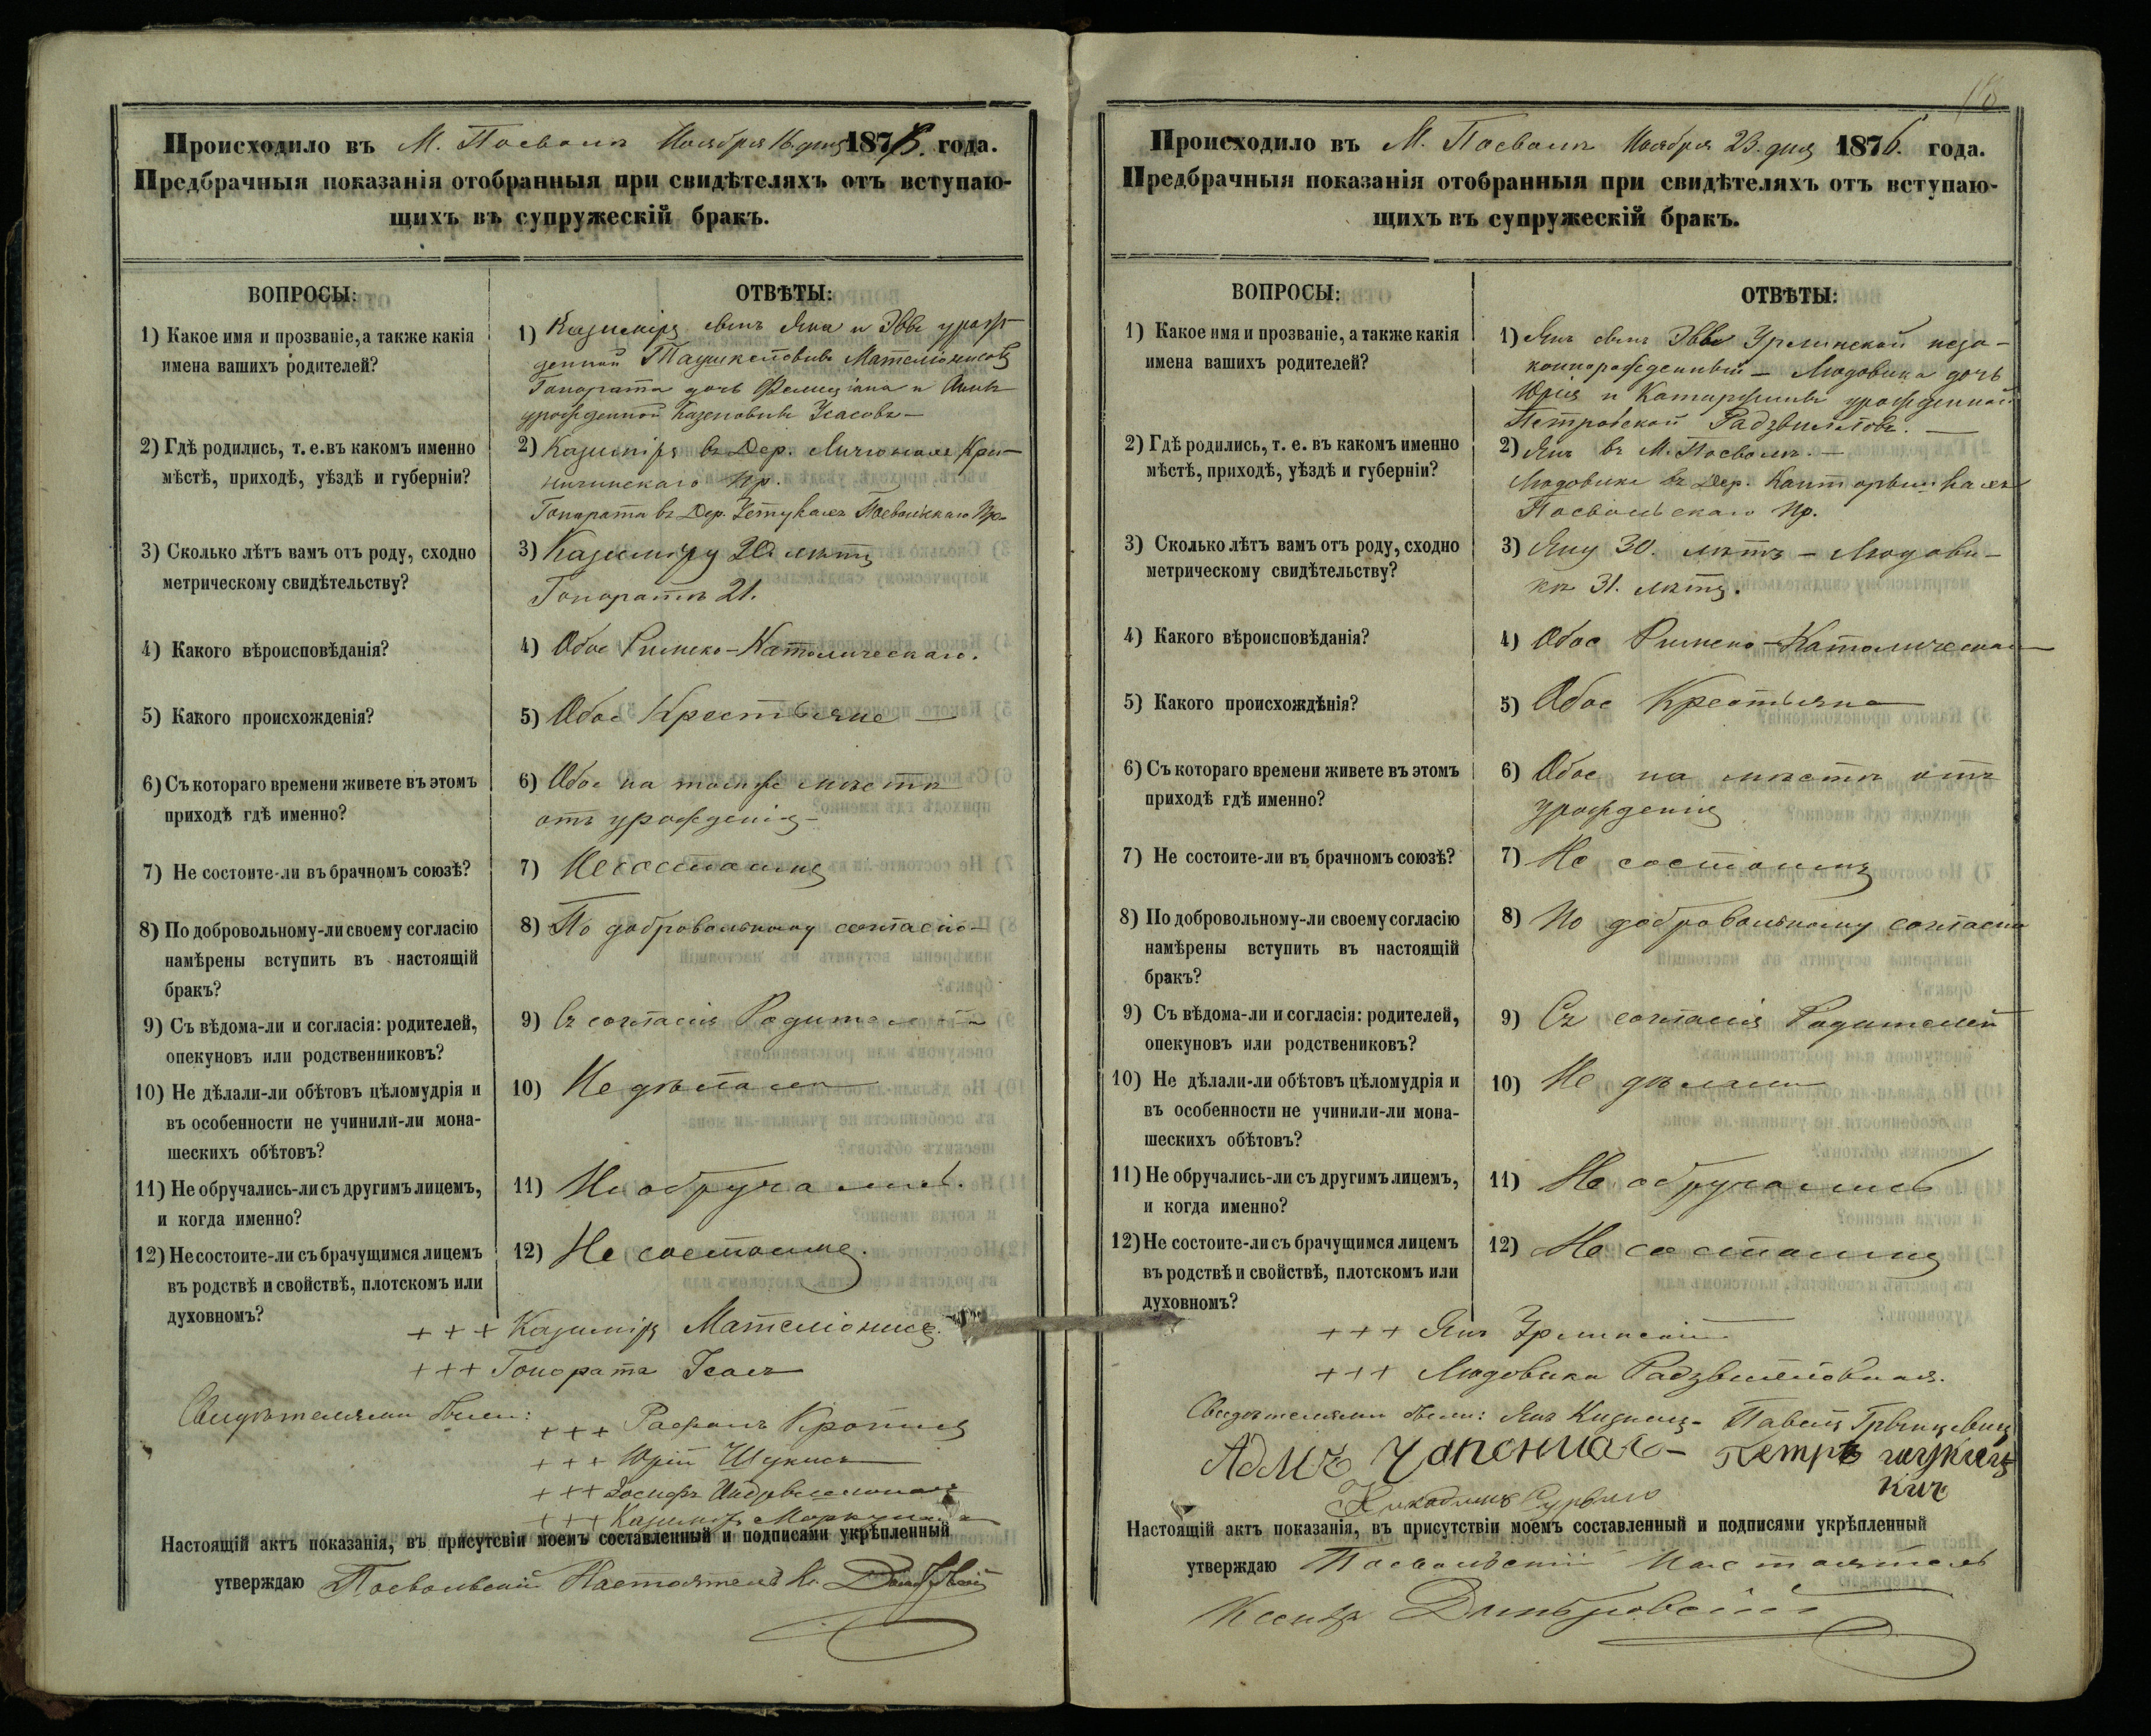 Происходило въ М. Посволь Ноября 16. дня 1876. года.
Предбрачныя показанія отобранныя при свидѣтеляхъ отъ вступаю-
щихъ въ супружескій бракъ.
ВОПРОСЫ:
ОТВѢТЫ:
1) Какое имя и прозваніе, а также какія
имена вашихъ родителей?
1) Казиміръ сынъ Яна и Эввы урож-
денной Мателіонисъ
Гонората дочь Фелиціана и Анны
урожденной
2) Гдѣ родились, т. е. въ какомъ именно
мѣстѣ, приходѣ, уѣздѣ и губерніи?
2) Казиміръ въ Дер. Кри-
ничинскаго Пр.
Гонората въ Дер. Посвольскаго Пр.
3) Сколько лѣтъ вамъ отъ роду, сходно
метрическому свидѣтельству?
3) Казиміру лѣтъ
Гоноратѣ 21.
4) Какого вѣроисповѣданія?
4) Обое Римско-Католическаго.
5) Какого происхожденія?
5) Обое Крестьяне —
6) Съ котораго времени живете въ этомъ
приходѣ гдѣ именно?
6) Обое на томже мѣстѣ
отъ урожденія —
7) Не состоите-ли въ брачномъ союзѣ?
7) Не состоимъ
8) По добровольному-ли своему согласію
намѣрены вступить въ настоящій
бракъ?
8) По добровольному согласію —
9) Съ вѣдома-ли и согласія: родителей,
опекуновъ или родственниковъ?
9) Съ согласія Родителей
10) Не дѣлали-ли обѣтовъ цѣломудрія и
въ особенности не учинили-ли мона-
шескихъ обѣтовъ?
10) Не дѣлали
11) Не обручались-ли съ другимъ лицемъ,
и когда именно?
11) Не обручались.
12) Не состоите-ли съ брачущимся лицемъ
въ родствѣ и свойствѣ, плотскомъ или
духовномъ?
12) Не состоимъ.
+++ Казиміръ Мателіонисъ.
+++ Гонората
Свидѣтелями были:
+++ Рафалъ
+++ Юрій
+++ Іосифъ
+++ Казиміръ
Настоящій актъ показанія, въ присутсвіи моемъ составленный и подписями укрѣпленный
утверждаю Посвольскій Настоятель К.
Происходило въ М. Посволь Ноября 23. дня 1876. года.
Предбрачныя показанія отобранныя при свидѣтеляхъ отъ вступаю-
щихъ въ супружескій бракъ.
ВОПРОСЫ:
ОТВѢТЫ:
1) Какое имя и прозваніе, а также какія
имена вашихъ родителей?
1) Янъ сынъ Эввы неза-
коннорожденный — Людовика дочь
Юрія и Катаржины урожденной
Петровской
2) Гдѣ родились, т. е. въ какомъ именно
мѣстѣ, приходѣ, уѣздѣ и губерніи?
2) Янъ въ М. Посволь. —
Людовика въ Дер.
Посвольскаго Пр.
3) Сколько лѣтъ вамъ отъ роду, сходно
метрическому свидѣтельству?
3) Яну 30. лѣтъ — Людови-
кѣ 31. лѣтъ.
4) Какого вѣроисповѣданія?
4) Обое Римско-Католическаго
5) Какого происхождѣнія?
5) Обое Крестьяне
6) Съ котораго времени живете въ этомъ
приходѣ гдѣ именно?
6) Обое на мѣстѣ отъ
урожденія
7) Не состоите-ли въ брачномъ союзѣ?
7) Не состоимъ
8) По добровольному-ли своему согласію
намѣрены вступить въ настоящій
бракъ?
8) По добровольному согласію
9) Съ вѣдома-ли и согласія: родителей,
опекуновъ или родствениковъ?
9) Съ согласія Родителей
10) Не дѣлали-ли обѣтовъ цѣломудрія и
въ особенности не учинили-ли мона-
шескихъ обѣтовъ?
10) Не дѣлали
11) Не обручались-ли съ другимъ лицемъ,
и когда именно?
11) Не обручались
12) Не состоите-ли съ брачущимся лицемъ
въ родствѣ и свойствѣ, плотскомъ или
духовномъ?
12) Не состоимъ
+++ Янъ
+++ Людовика
Свидѣтелями были: Янъ Павелъ
Петръ
Настоящій актъ показанія, въ присутствіи моемъ составленный и подписями укрѣпленный
утверждаю Посвольскій Настоятель
Ксендзъ Домбровскій